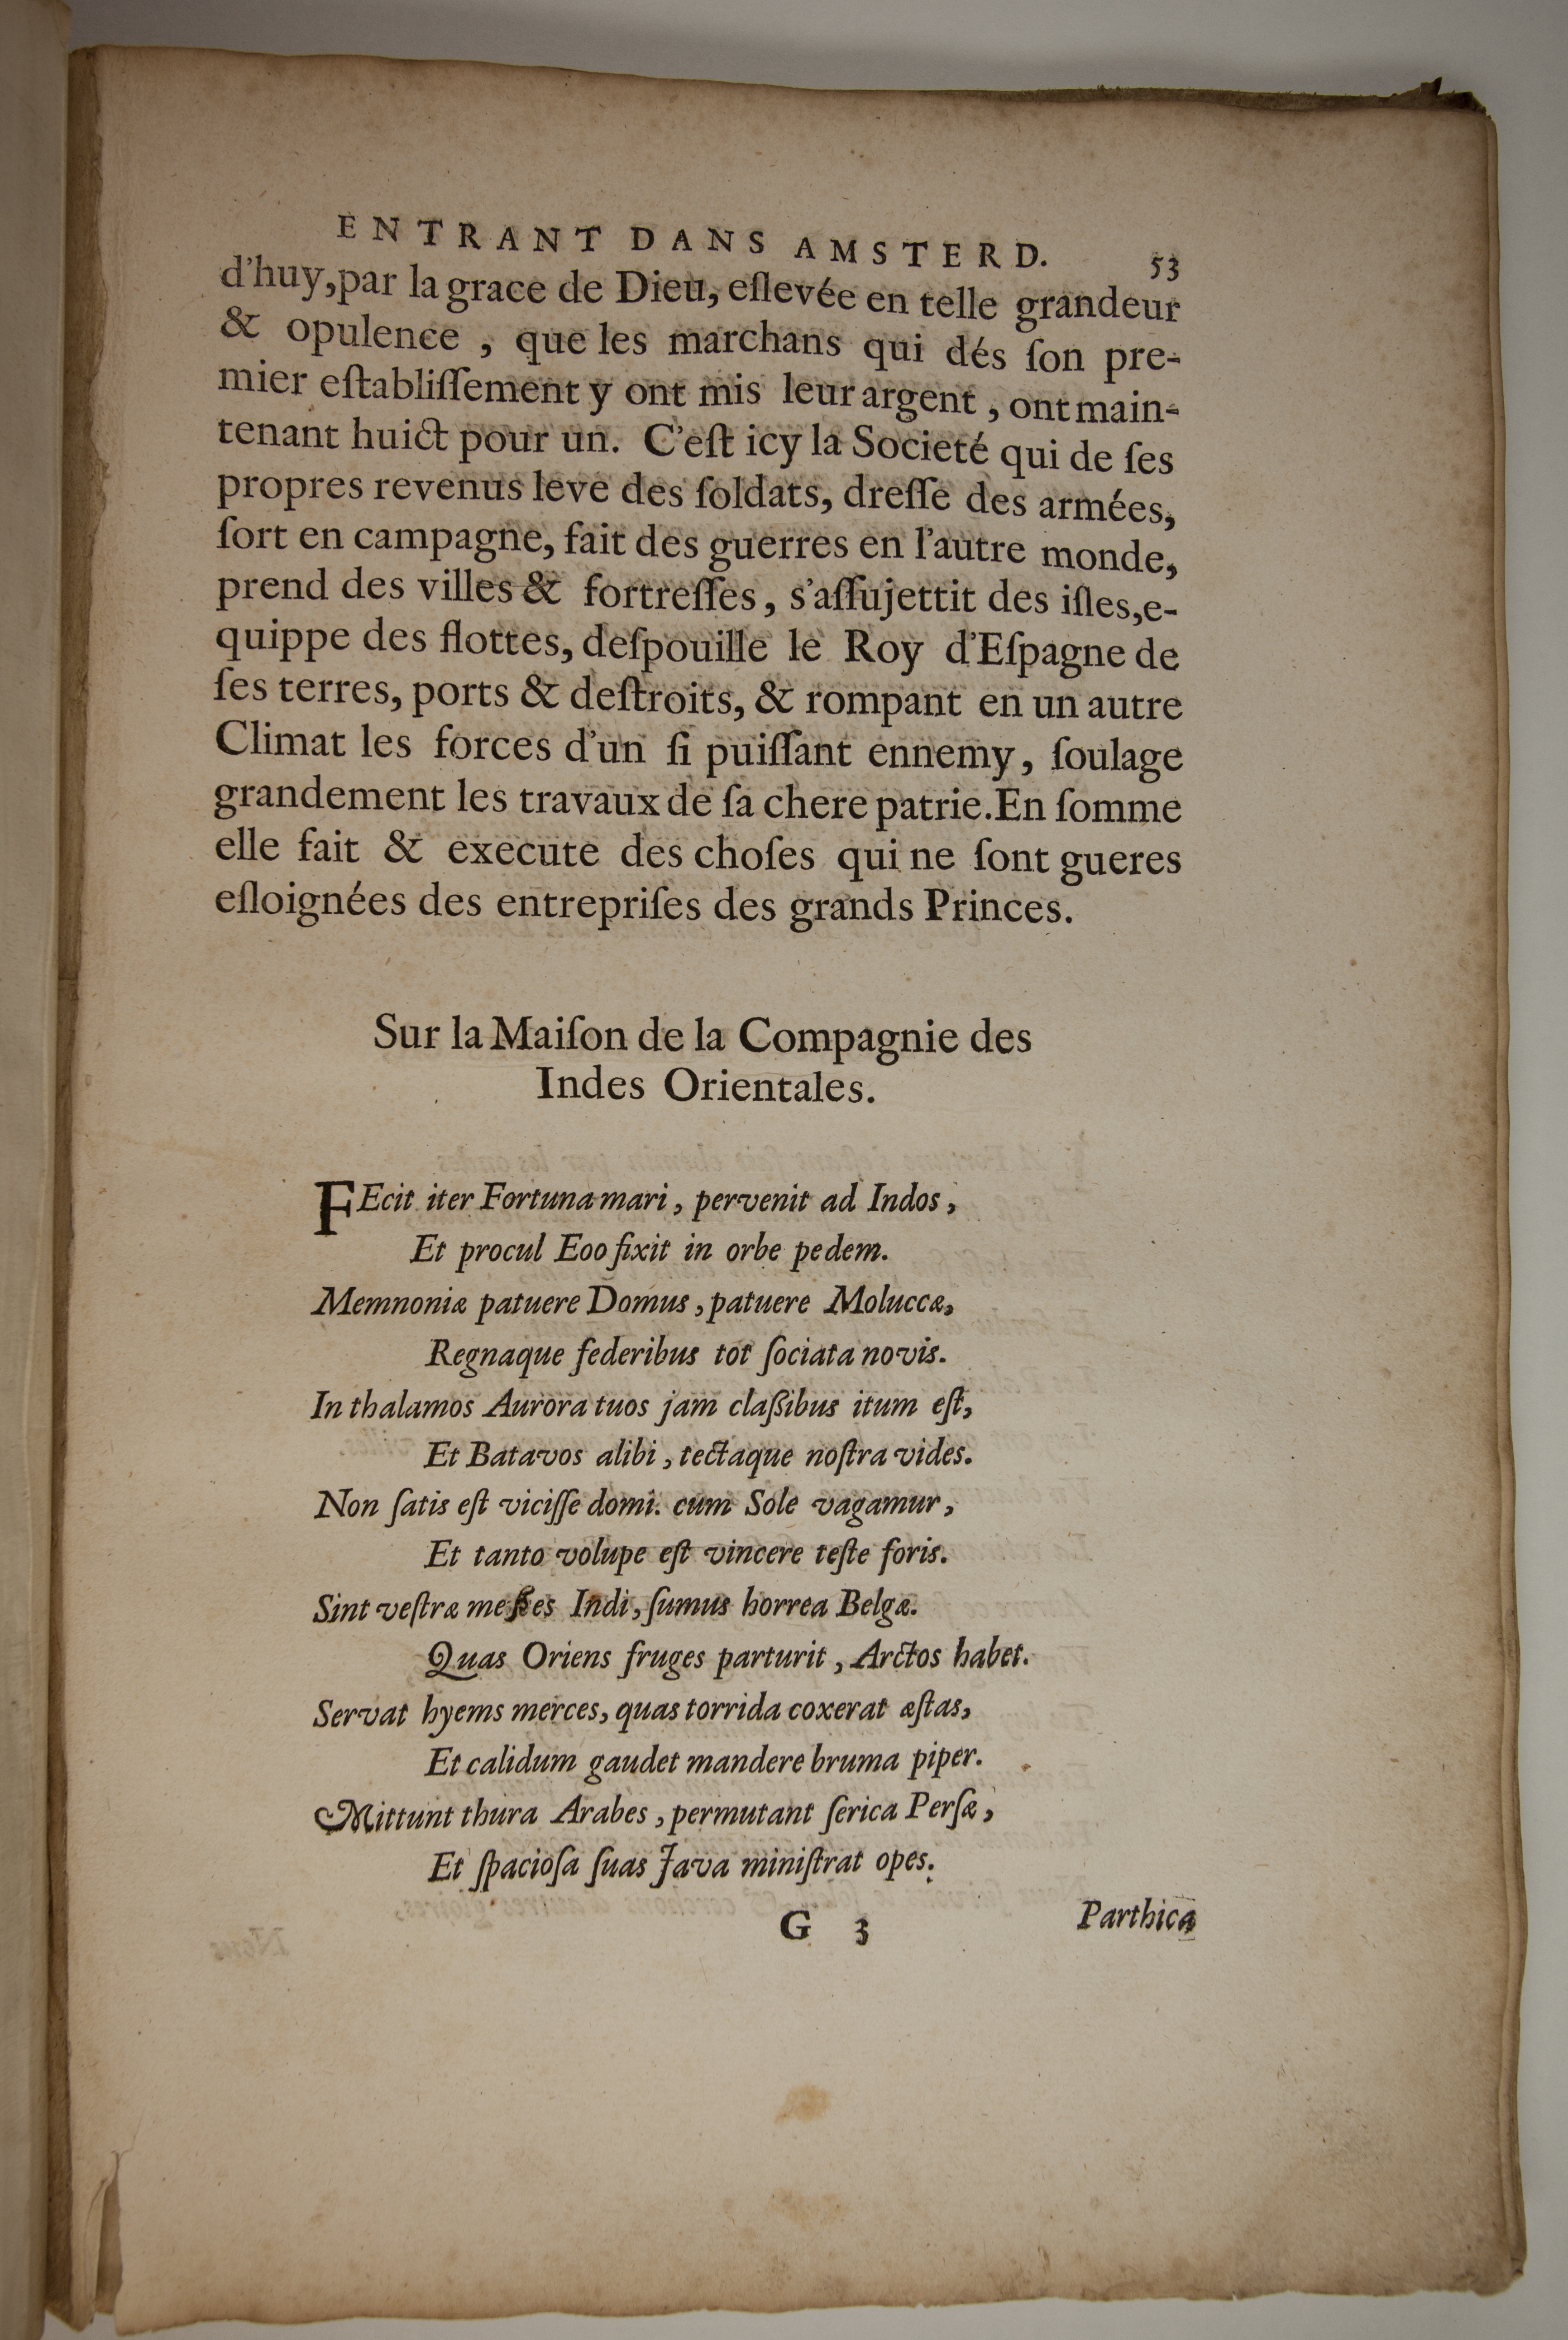 ENTRANT DANS AMSTERD. 53
d'huy,par la grace de Dieu, eſlevée en telle grandeur
& opulence , que les marchans qui dés ſon pre-
mier eſtabliſſement y ont mis leur argent , ont main-
tenant huict pour un. C'eſt icy la Societé qui de ſes
propres revenus leve des ſoldats, dreſſe des armées,
ſort en campagne, fait des guerres en l'autre monde,
prend des villes & fortreſſes, s'aſſujettit des iſles,e-
quippe des flottes, deſpouille le Roy d'Eſpagne de
ſes terres, ports & deſtroits, & rompant en un autre
Climat les forces d'un ſi puiſſant ennemy, ſoulage
grandement les travaux de ſa chere patrie.En ſomme
elle fait & execute des choſes qui ne ſont gueres
eſloignées des entrepriſes des grands Princes.
Sur la Maiſon de la Compagnie des
Indes Orientales.
FEcit iter Fortuna mari, pervenit ad Indos,
Et procul Eoo fixit in orbe pedem.
Memnoniæ patuere Domus, patuere Moluccæ,
Regnaque federibus tot ſociata novis.
In thalamos Aurora tuos jam claßibus itum eſt,
Et Batavos alibi, tectaque noſtra vides.
Non ſatis eſt viciſſe domi. cum Sole vagamur,
Et tanto volupe eſt vincere teſte foris.
Sint veſtræ meßes Indi, ſumus horrea Belgæ.
Quas Oriens fruges parturit, Arctos habet.
Servat hyems merces, quas torrida coxerat æſtas,
Et calidum gaudet mandere bruma piper.
Mittunt thura Arabes, permutant ſerica Perſæ,
Et ſpacioſa ſuas Java miniſtrat opes.
G 3 Parthica